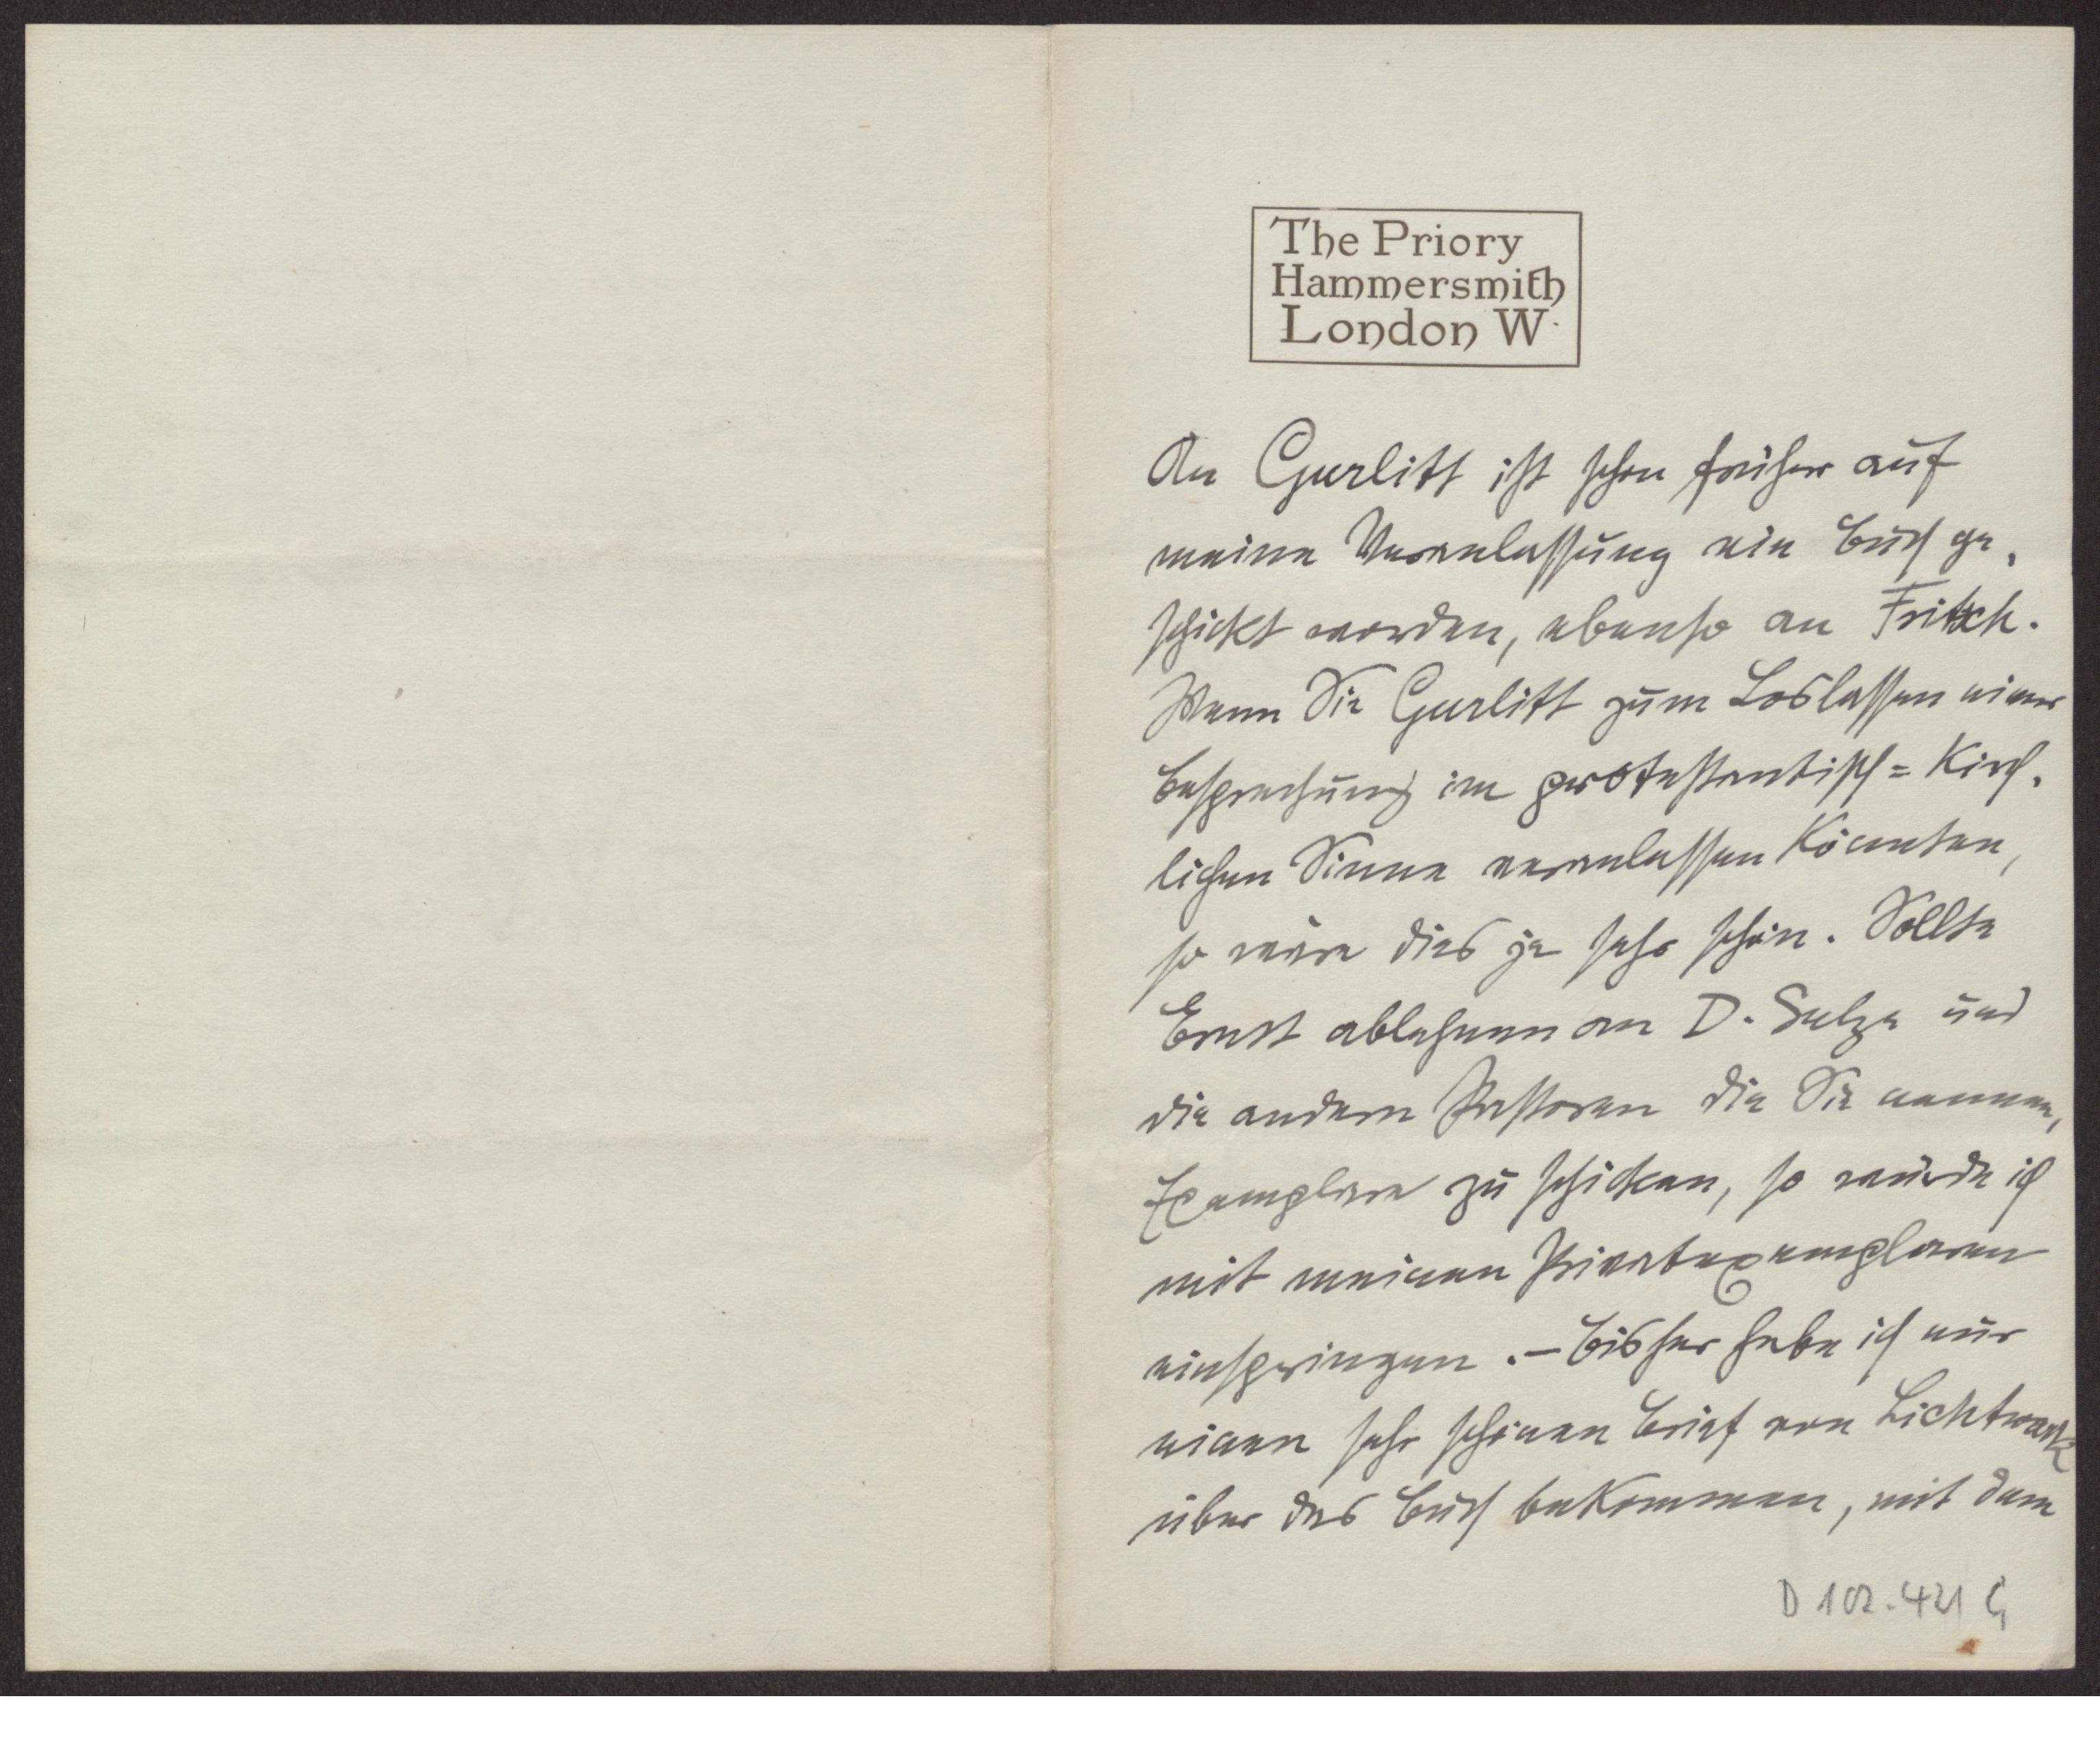 The Priory
Hammersmith
London W.
An Gurlitt ist schon früher auf
meine Veranlassung ein Buch ge-
schickt worden, ebenso an Fritsch.
Wenn Sie Gurlitt zum Loslassen einer
Besprechung im protestantisch=kirch-
lichen Sinne veranlassen könnten,
so wäre dies ja sehr schön. Sollte
Ernst ablehnen an D. Sulze und
die andern Pastoren die Sie nennen,
Exemplare zu schicken, so würde ich
mit meinen Privatexemplaren
einspringen. – Bisher habe ich nur
einen sehr schönen Brief von Lichtwark
über das Buch bekommen, mit dem
D 102.421 G